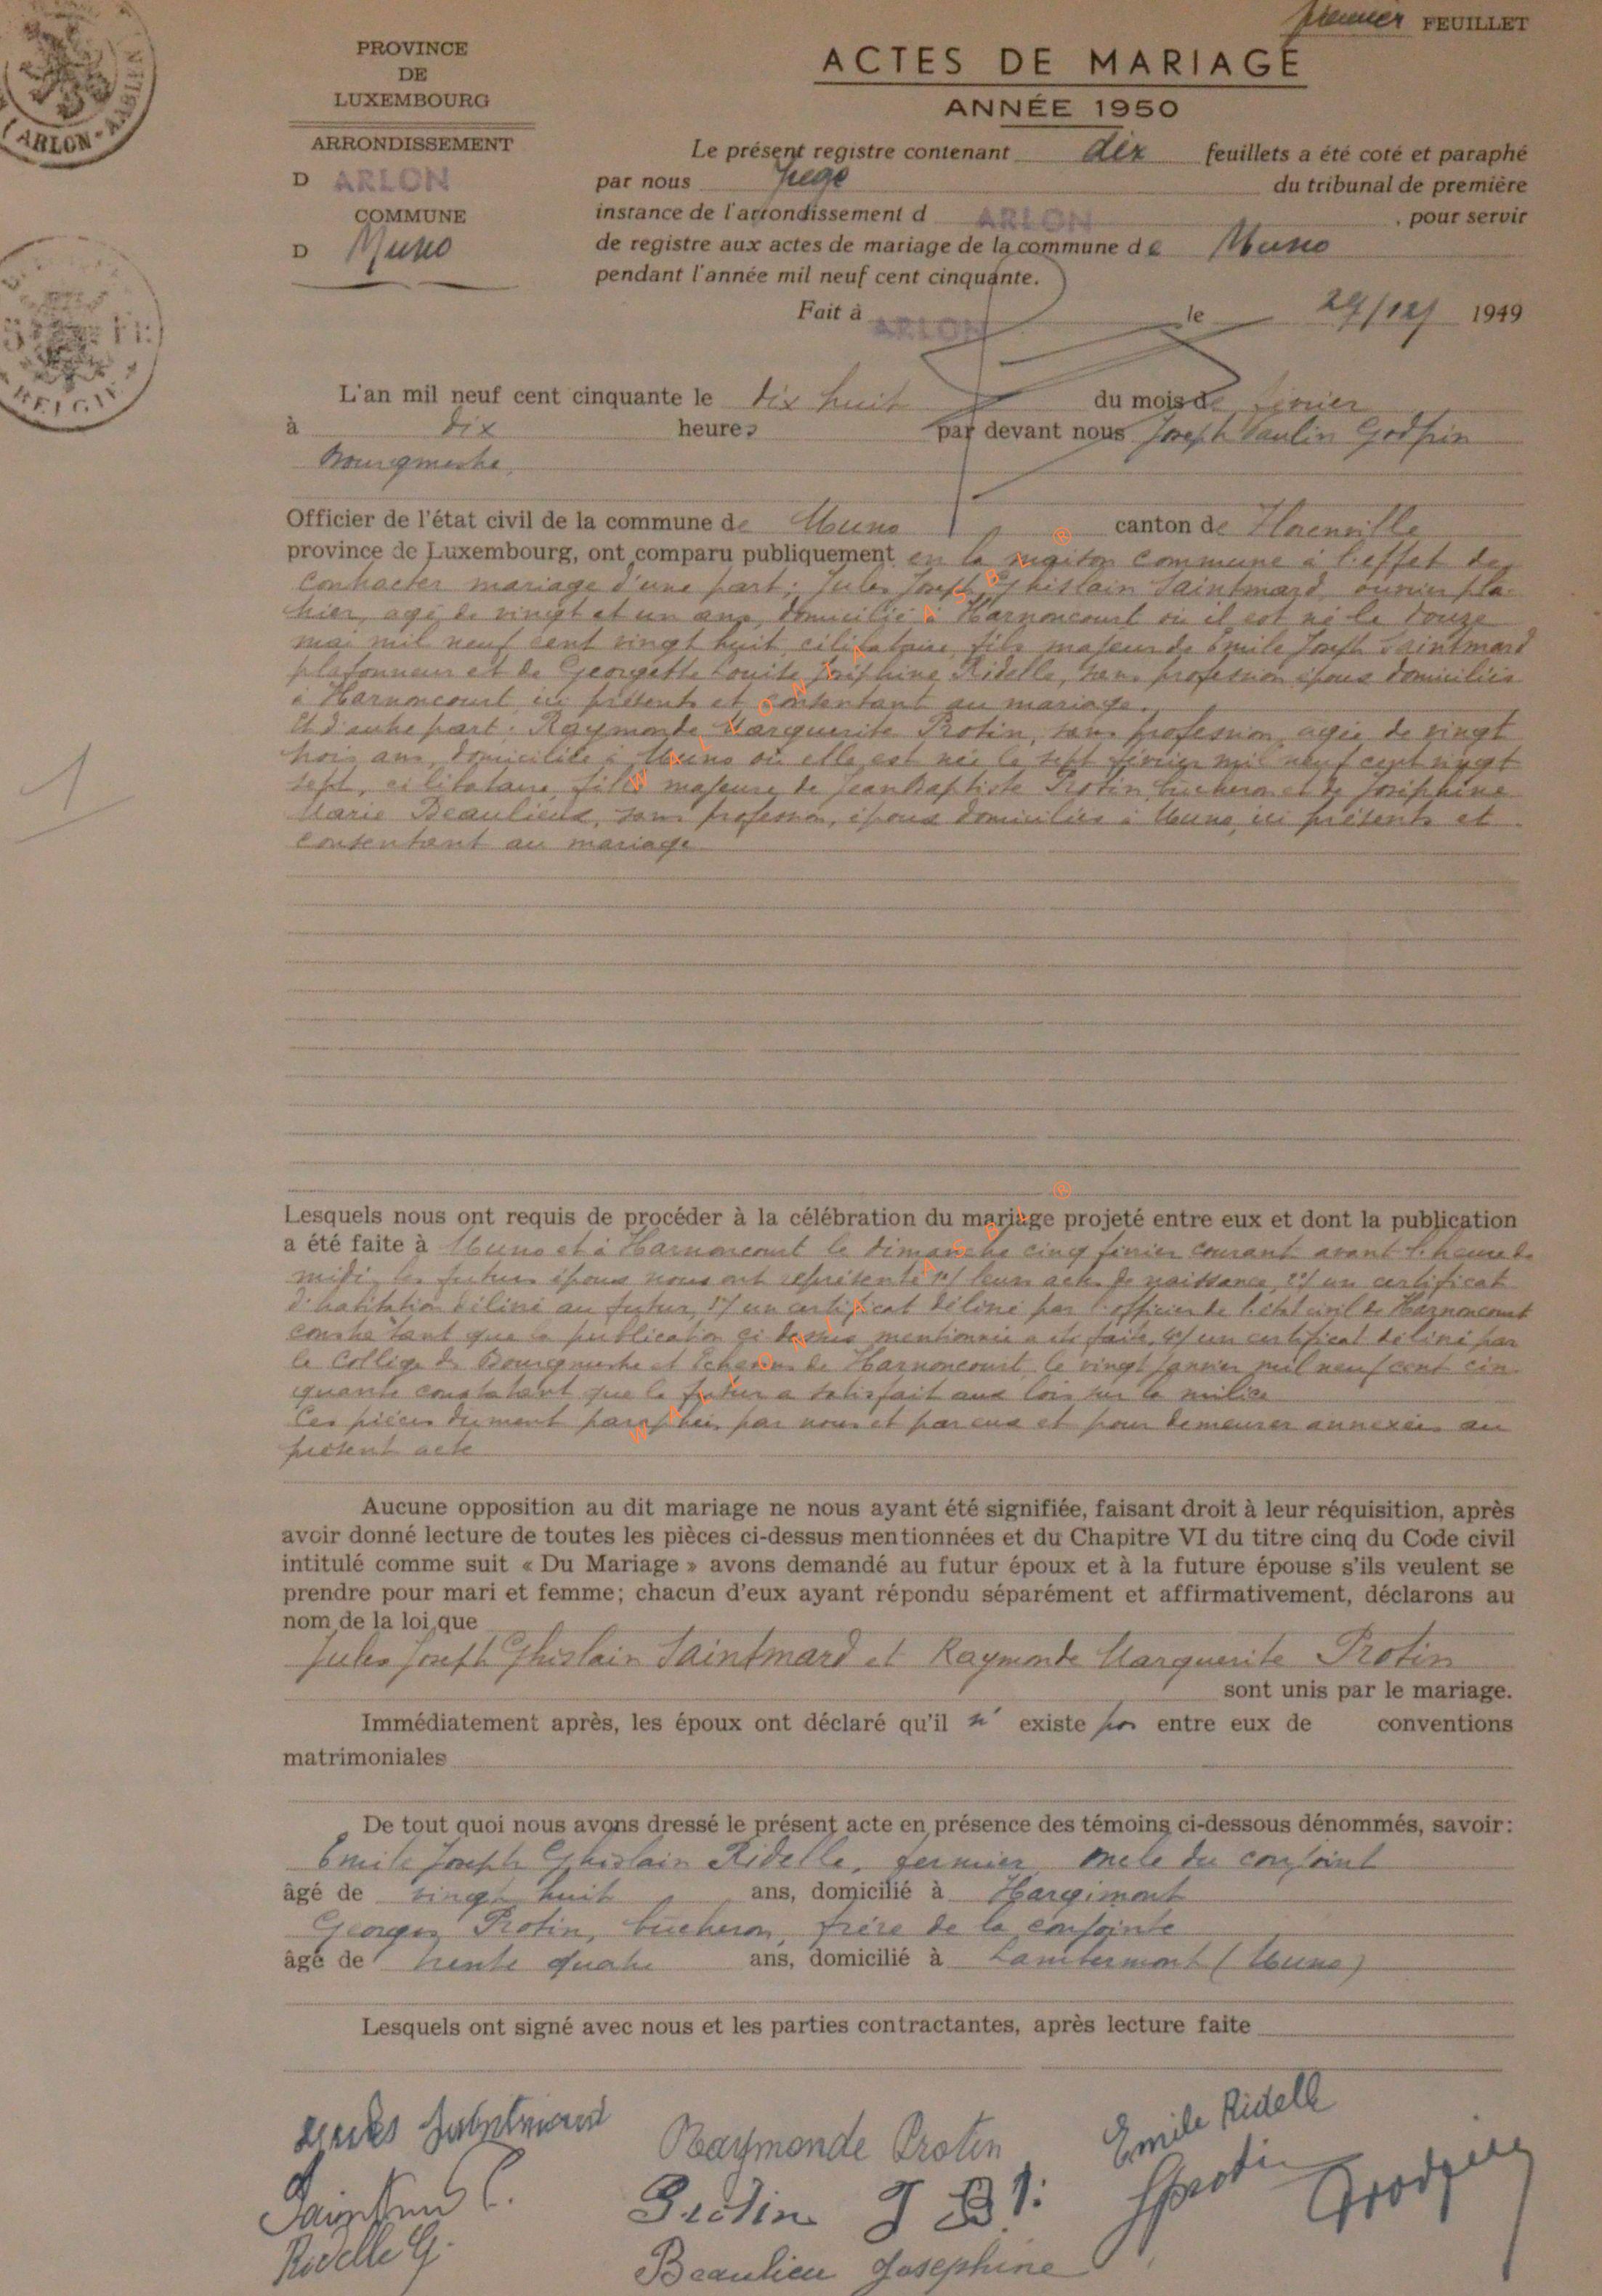 premier FEUILLET
PROVINCE
DE
LUXEMBOURG
ARRONDISSEMENT
D ARLON
COMMUNE
D Muno
ACTES DE MARIAGE
ANNÉE 1950
Le présent registre contenant dix feuillets a été coté et paraphé
par nous Juge du tribunal de première
instance de l'arrondissement d ARLON , pour servir
de registre aux actes de mariage de la commune de Muno
pendant l'année mil neuf cent cinquante.
Fait à ARLON le 29/12/ 1949
ARLON-AARLEN
BELGIE
1
L'an mil neuf cent cinquante le dix huit du mois de février
à dix heures par devant nous Joseph Paulin Godfrin
Bourgmestre,
Officier de l'état civil de la commune de Muno canton de Florenville
province de Luxembourg, ont comparu publiquement en la maison commune à l'effet de
contracter mariage d'une part; Jules Joseph Ghislain Saintmard ouvrier plâ-
trier, agé de vingt et un ans, domicilié à Harnoncourt où il est né le douze
mai mil neuf cent vingt huit, célibataire, fils majeur de Emile Joseph Saintmard
plafonneur et de Georgette Louise Joséphine Ridelle, sans profession époux domiciliés
à Harnoncourt ici présents et consentant au mariage.
Et d'autre part: Raymonde Marguerite Protin, sans profession, agée de vingt
trois ans, domiciliée à Muno où elle est née le sept février mil neuf cent vingt
sept, célibataire, fille majeure de Jean Baptiste Protin, bucheron et de Joséphine
Marie Beaulieux, sans profession, époux domiciliés à Muno, ici présents et
consentant au mariage
Lesquels nous ont requis de procéder à la célébration du mariage projeté entre eux et dont la publication
a été faite à Muno et à Harnoncourt le dimanche cinq février courant avant l'heure de
midi, les futurs époux nous ont représenté 1°/ leurs actes de naissance, 2°/ un certificat
d'habitation délivré au futur, 3°/ un certificat délivré par l'officier de l'état civil de Harnoncourt
constatant que la publication ci dessus mentionnée a été faite, 4°/ un certificat délivré par
le Collège des Bourgmestre et Echevins de Harnoncourt le vingt janvier mil neuf cent cin-
quante constatant que le futur a satisfait aux lois sur la milice
Ces pièces dument paraphées par nous et par eux et pour demeurer annexées au
présent acte
Aucune opposition au dit mariage ne nous ayant été signifiée, faisant droit à leur réquisition, après
avoir donné lecture de toutes les pièces ci-dessus mentionnées et du Chapitre VI du titre cinq du Code civil
intitulé comme suit « Du Mariage » avons demandé au futur époux et à la future épouse s'ils veulent se
prendre pour mari et femme; chacun d'eux ayant répondu séparément et affirmativement, déclarons au
nom de la loi que
Jules Joseph Ghislain Saintmard et Raymonde Marguerite Protin
sont unis par le mariage.
Immédiatement après, les époux ont déclaré qu'il n' existe pas entre eux de conventions
matrimoniales
De tout quoi nous avons dressé le présent acte en présence des témoins ci-dessous dénommés, savoir:
Emile Joseph Ghislain Ridelle, fermier, oncle du conjoint
âgé de vingt huit ans, domicilié à Hargimont
Georges Protin, bucheron, frère de la conjointe
âgé de trente quatre ans, domicilié à Lambermont (Muno)
Lesquels ont signé avec nous et les parties contractantes, après lecture faite
Jules Saintmard
Raymonde Protin
Emile Ridelle
Protin J Bt:
GProtin
Ridelle G.
Beaulieu Josephine
WALLONIA ASBL ®
WALLONIA ASBL ®